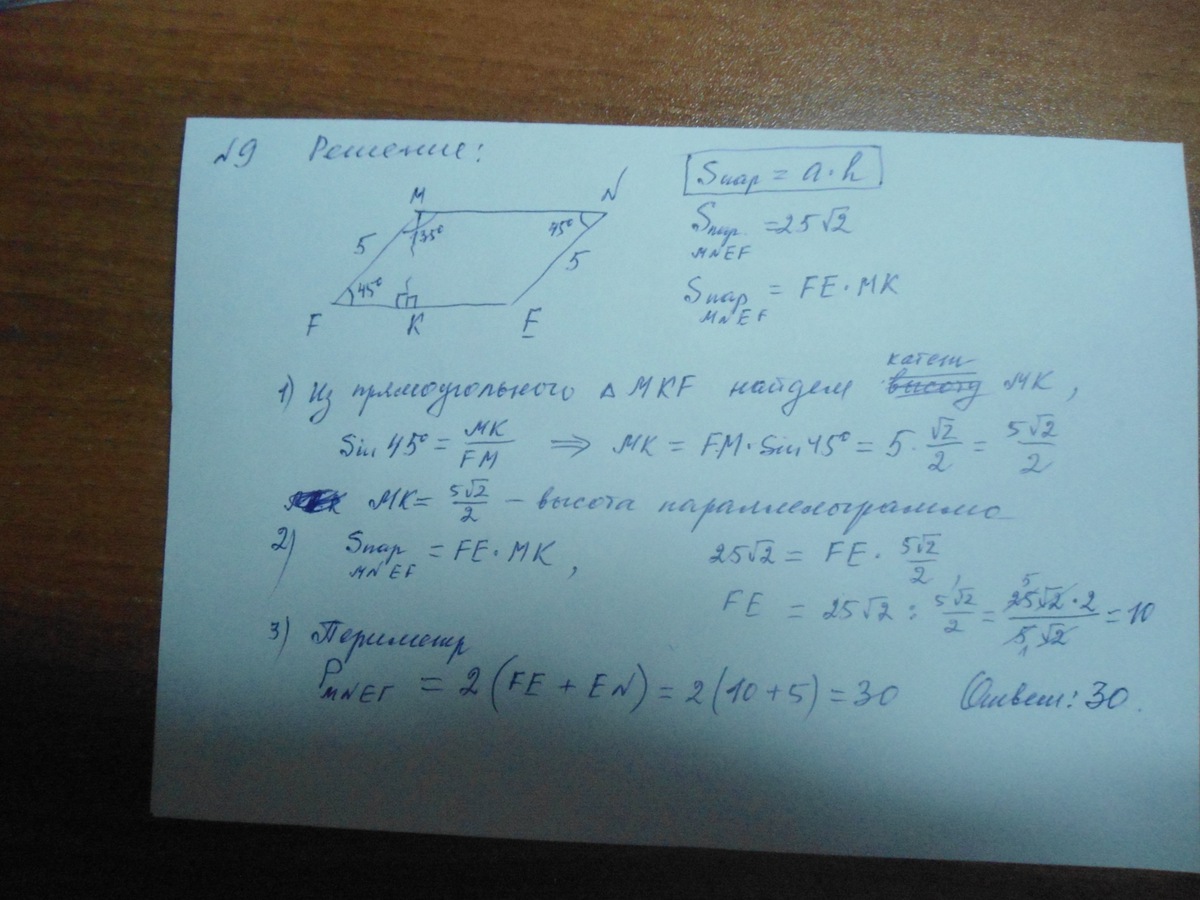 №9 Решение:
M N
135° 45°
5 5
45°
F K E
Sпар = a·h
Sпар. MNEF = 25√2
Sпар MNEF = FE·MK
1) Из прямоугольного △ MKF найдем катет высоту MK,
Sin 45° = MK/FM ⇒ MK = FM·Sin 45° = 5·√2/2 = 5√2/2
MK = 5√2/2 – высота параллелограмма
2) Sпар MNEF = FE·MK, 25√2 = FE·5√2/2,
FE = 25√2 : 5√2/2 = 25√2·2/5√2 = 10
3) Периметр
P MNEF = 2(FE + EN) = 2(10+5) = 30 Ответ: 30.